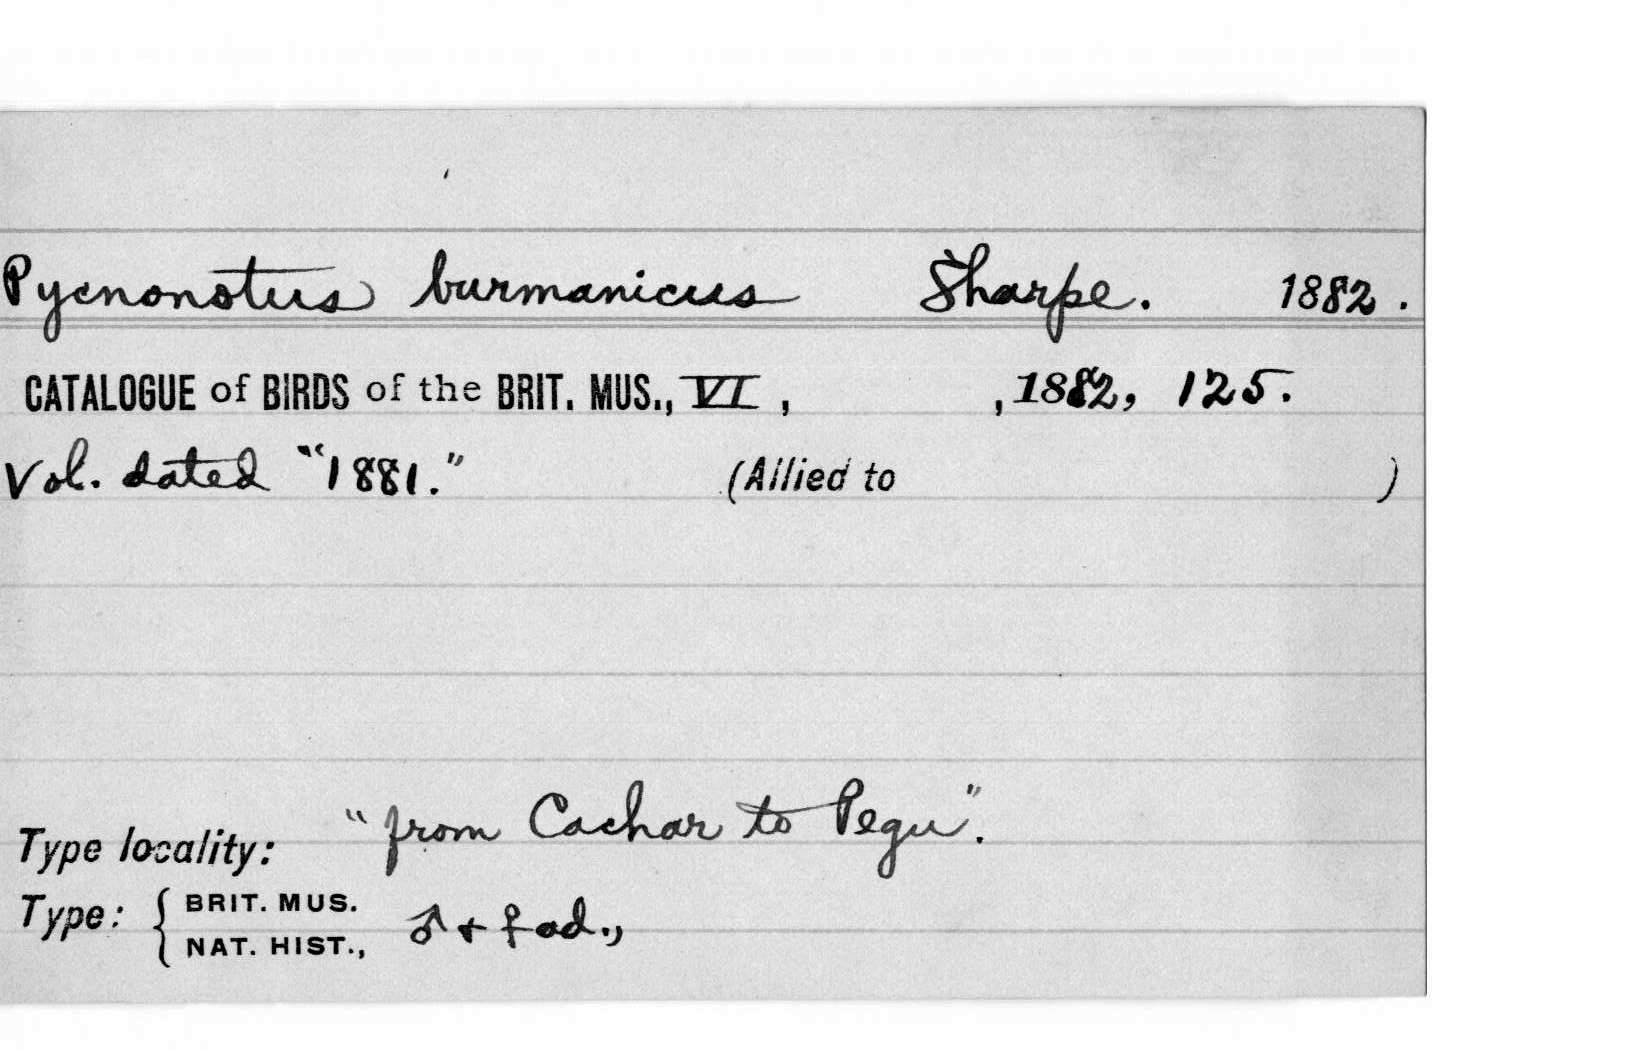 Pycnonotus burmanicus Sharpe. 1882.
CATALOGUE of BIRDS of the BRIT. MUS., VI, , 1882, 125.
Vol. dated "1881." (Allied to )
Type locality: "from Cachar to Pegu".
Type: { BRIT. MUS. NAT. HIST., ♂ + ♀ ad.,